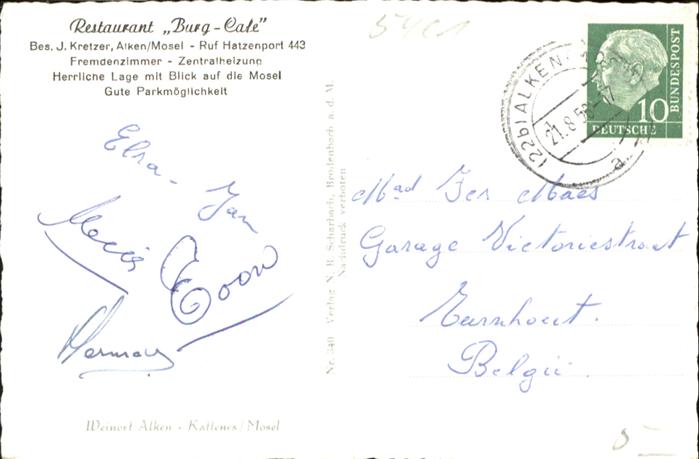 Restaurant „Burg-Café"
Bes. J. Kretzer, Alken/Mosel - Ruf Hatzenport 443
Fremdenzimmer - Zentralheizung
Herrliche Lage mit Blick auf die Mosel
Gute Parkmöglichkeit
Elza - Jan
Toon
Herman
Weinort Alken - Kattenes/Mosel
Nr. 340 Verlag N. R. Scharbach, Brodenbach a. d. M.
Nachdruck verboten
(22b) ALKEN
21.8.58-17
a
10
DEUTSCHE
BUNDESPOST
Mad Jef Maes
Garage Victoriestraat
Turnhout.
Belgïe.